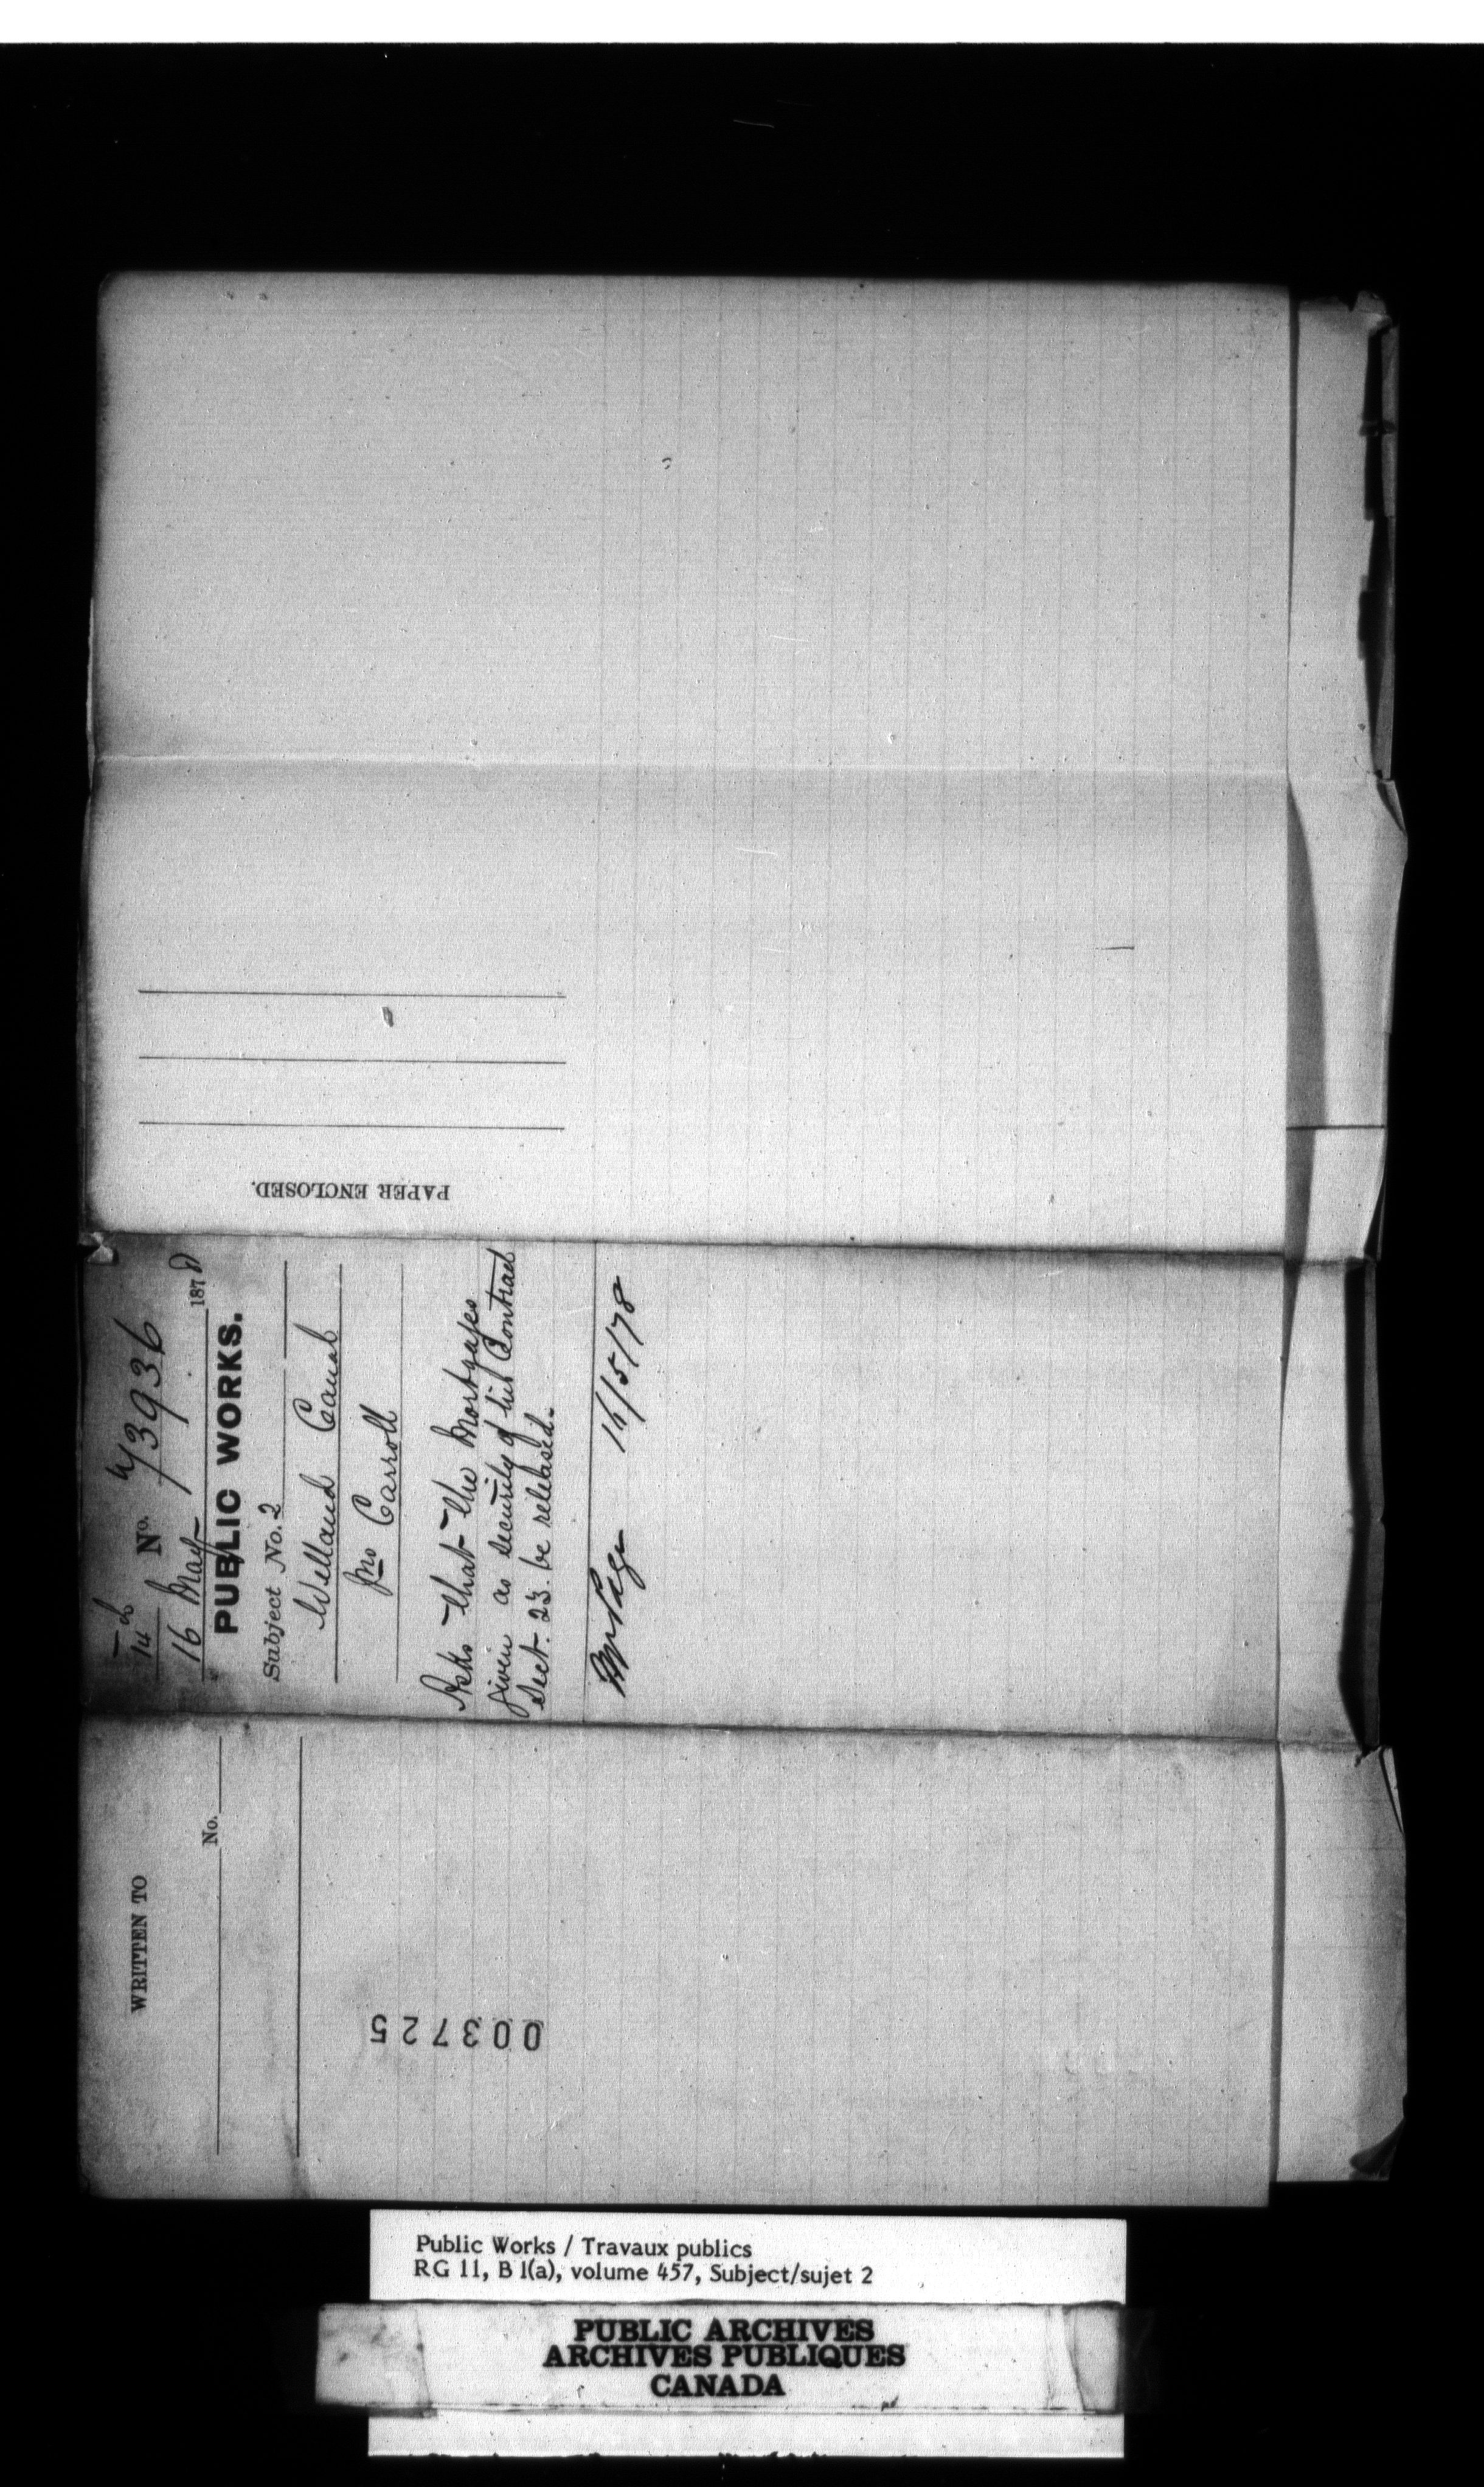 PAPER ENCLOSED.
14th No. 73936
16 May 1878
PUBLIC WORKS.
Subject No. 2
Welland Canal
Jno Carroll
Asks that the Mortgages
given as security of his Contract
Sect. 23. be released.
Mr Page 16/5/78
WRITTEN TO
No.
003725
Public Works / Travaux publics
RG 11, B 1(a), volume 457, Subject/sujet 2
PUBLIC ARCHIVES
ARCHIVES PUBLIQUES
CANADA